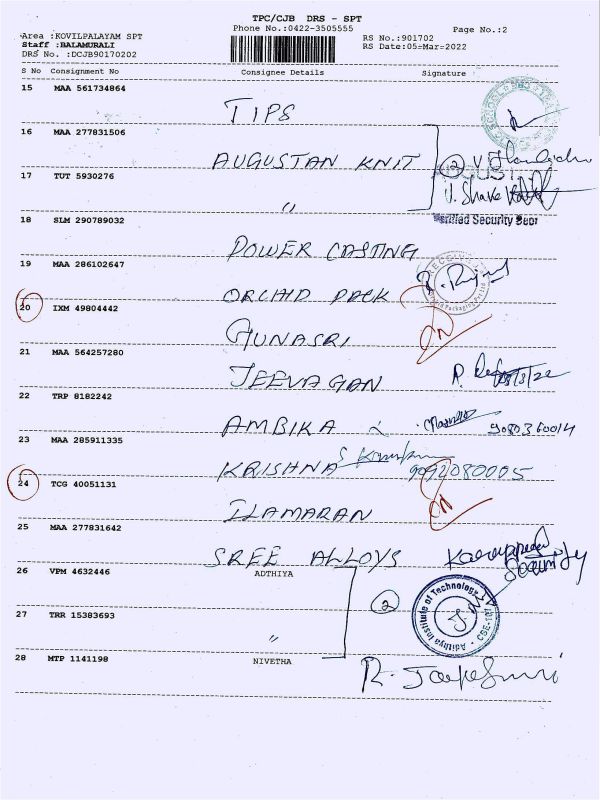 TPC/CJB DRS - SPT
Phone No.:0422-3505555 Page No.:2
Area :KOVILPALAYAM SPT RS No.:901702
Staff :BALAMURALI RS Date:05-Mar-2022
DRS No. :DCJB90170202
S No Consignment No Consignee Details Signature
15 MAA 561734864
TIPS
16 MAA 277831506
AUGUSTAN KNIT 2
17 TUT 5930276
"
Verified Security
18 SLM 290789032
POWER CASTING
19 MAA 286102647
ORCHID PACK
20 IXM 49804442
GUNASRI
21 MAA 564257280
JEEVAGAN
22 TRP 8182242
AMBIKA
23 MAA 285911335
KRISHNA 9092080005
24 TCG 40051131
ILAMARAN
25 MAA 277831642
SREE ALLOYS Security
26 VPM 4632446 ADTHIYA
2 Adithya Institute of Technology
27 TRR 15383693
"
28 MTP 1141198 NIVETHA